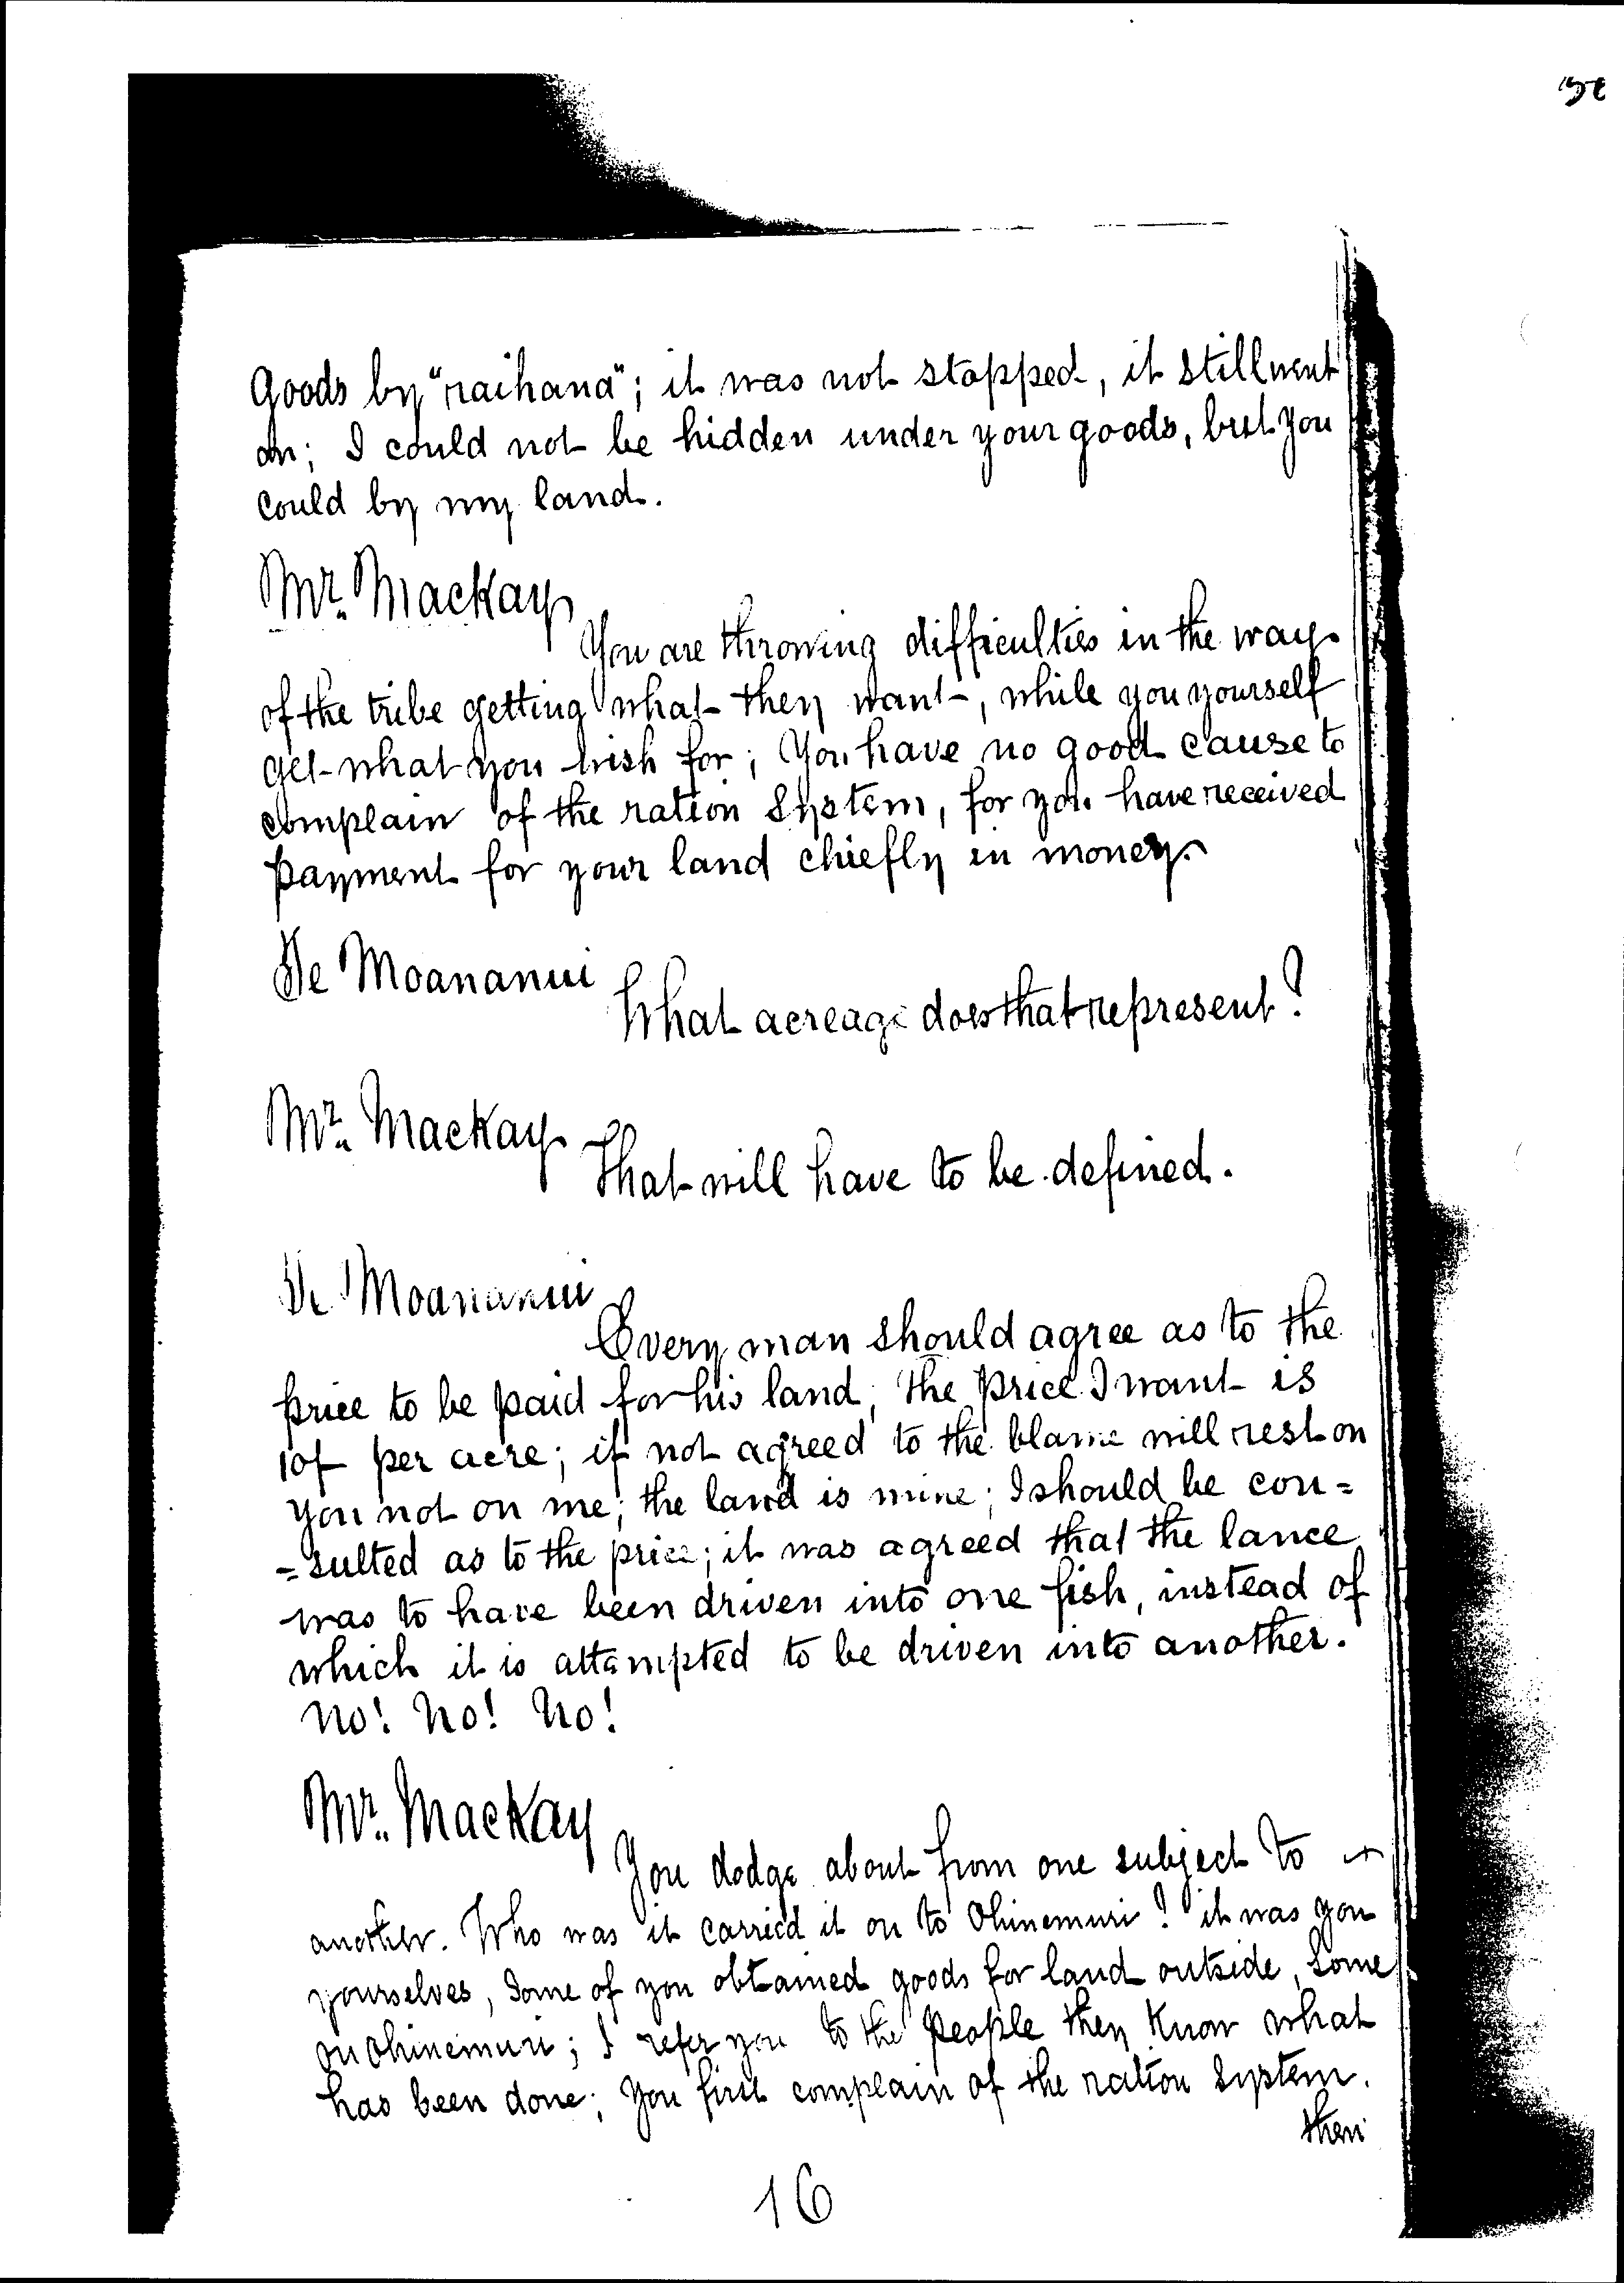 goods by "raihana"; it was not stopped, it still went
on; I could not be hidden under your goods, but you
could by my land.
Mr. Mackay
You are throwing difficulties in the way
of the tribe getting what they want, while you yourself
get what you wish for; You have no good cause to
complain of the ration system, for you have received
payment for your land chiefly in money.
Te Moananui
What acreage does that represent?
Mr. Mackay
That will have to be defined.
Te Moananui
Every man should agree as to the
price to be paid for his land; the price I want is
10/- per acre; if not agreed to the blame will rest on
you not on me; the land is mine; I should be con=
=sulted as to the price; it was agreed that the lance
was to have been driven into one fish, instead of
which it is attempted to be driven into another.
No! No! No!
Mr. Mackay
You dodge about from one subject to
another. Who was it carried it on to Ohinemuri? it was you
yourselves, some of you obtained goods for land outside, some
on Ohinemuri; I refer you to the people they know what
has been done; you first complain of the ration system.
then
16